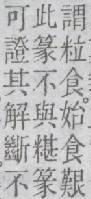 謂粒食始。食艱
此篆不與糂篆
可證其解斷不